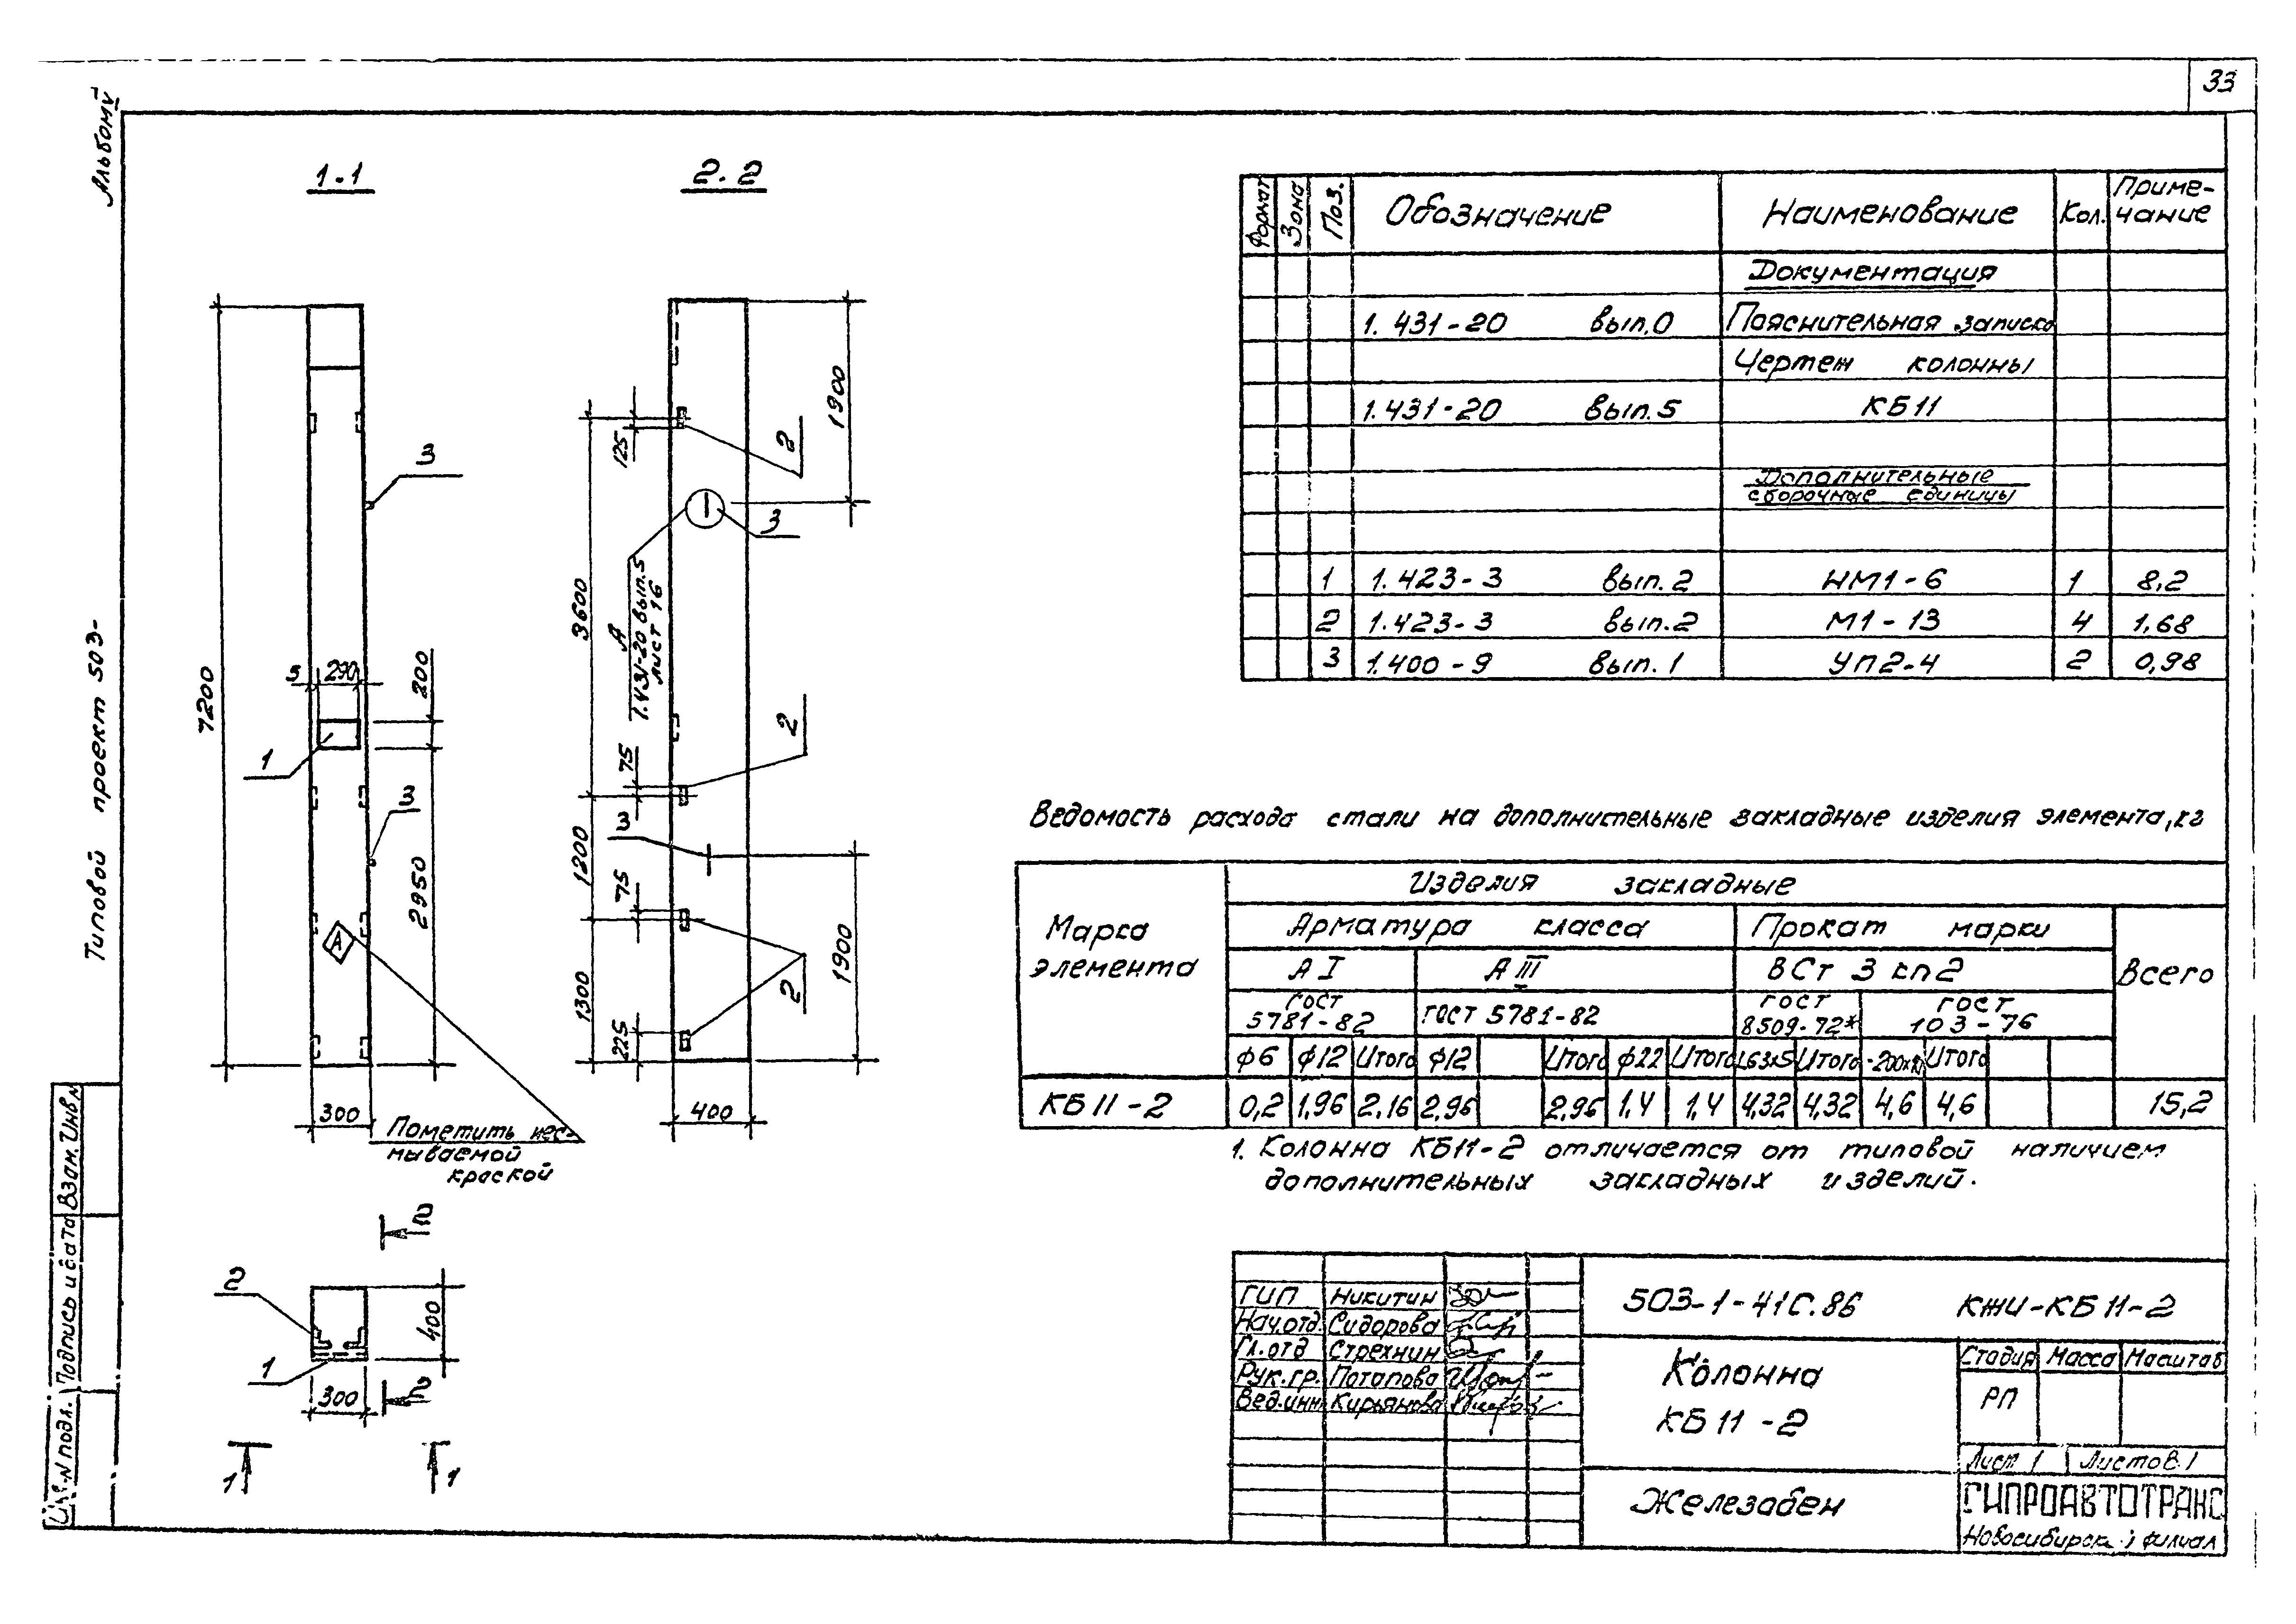 33
Альбом V
Типовой проект 503-
1-1
2-2
7200
3
5
290
200
1
3
2950
А
300
Пометить нес-
мываемой
краской
125
2
1900
3
3600
А
1.431-20 вып.5
лист 16
75
2
3
1200
75
1900
2
1300
225
400
2
2
1
300
400
2
1
1
Формат Зона Поз. Обозначение Наименование Кол. Приме-
чание
Документация
1.431-20 вып.0 Пояснительная записка
Чертеж колонны
1.431-20 вып.5 КБ11
Дополнительные
сборочные единицы
1 1.423-3 вып.2 НМ1-6 1 8,2
2 1.423-3 вып.2 М1-13 4 1,68
3 1.400-9 вып.1 УП2-4 2 0,98
Ведомость расхода стали на дополнительные закладные изделия элемента, кг
Марка
элемента
Изделия закладные
Арматура класса Прокат марки
Всего
А I А III ВСт 3 кп2
ГОСТ
5781-82
ГОСТ 5781-82
ГОСТ
8509-72*
ГОСТ
103-76
ф6 ф12 Итого ф12 Итого ф22 Итого L63x5 Итого Итого
КБ11-2 0,2 1,96 2,16 2,96 2,96 1,4 1,4 4,32 4,32 4,6 4,6 15,2
1. Колонна КБ11-2 отличается от типовой наличием
дополнительных закладных изделий.
ГИП Никитин
Нач.отд. Сидорова
Гл.отд Стрехнин
Рук.гр. Потапова
Вед.инж Кирьянова
503-1-41С.86 КЖИ-КБ11-2
Колонна
КБ11-2
Стадия Масса Масштаб
РП
Лист 1 Листов 1
Железобен
ГИПРОАВТОТРАНС
Новосибирск. филиал
Инв.N подл. Подпись и дата Взам.Инв.N